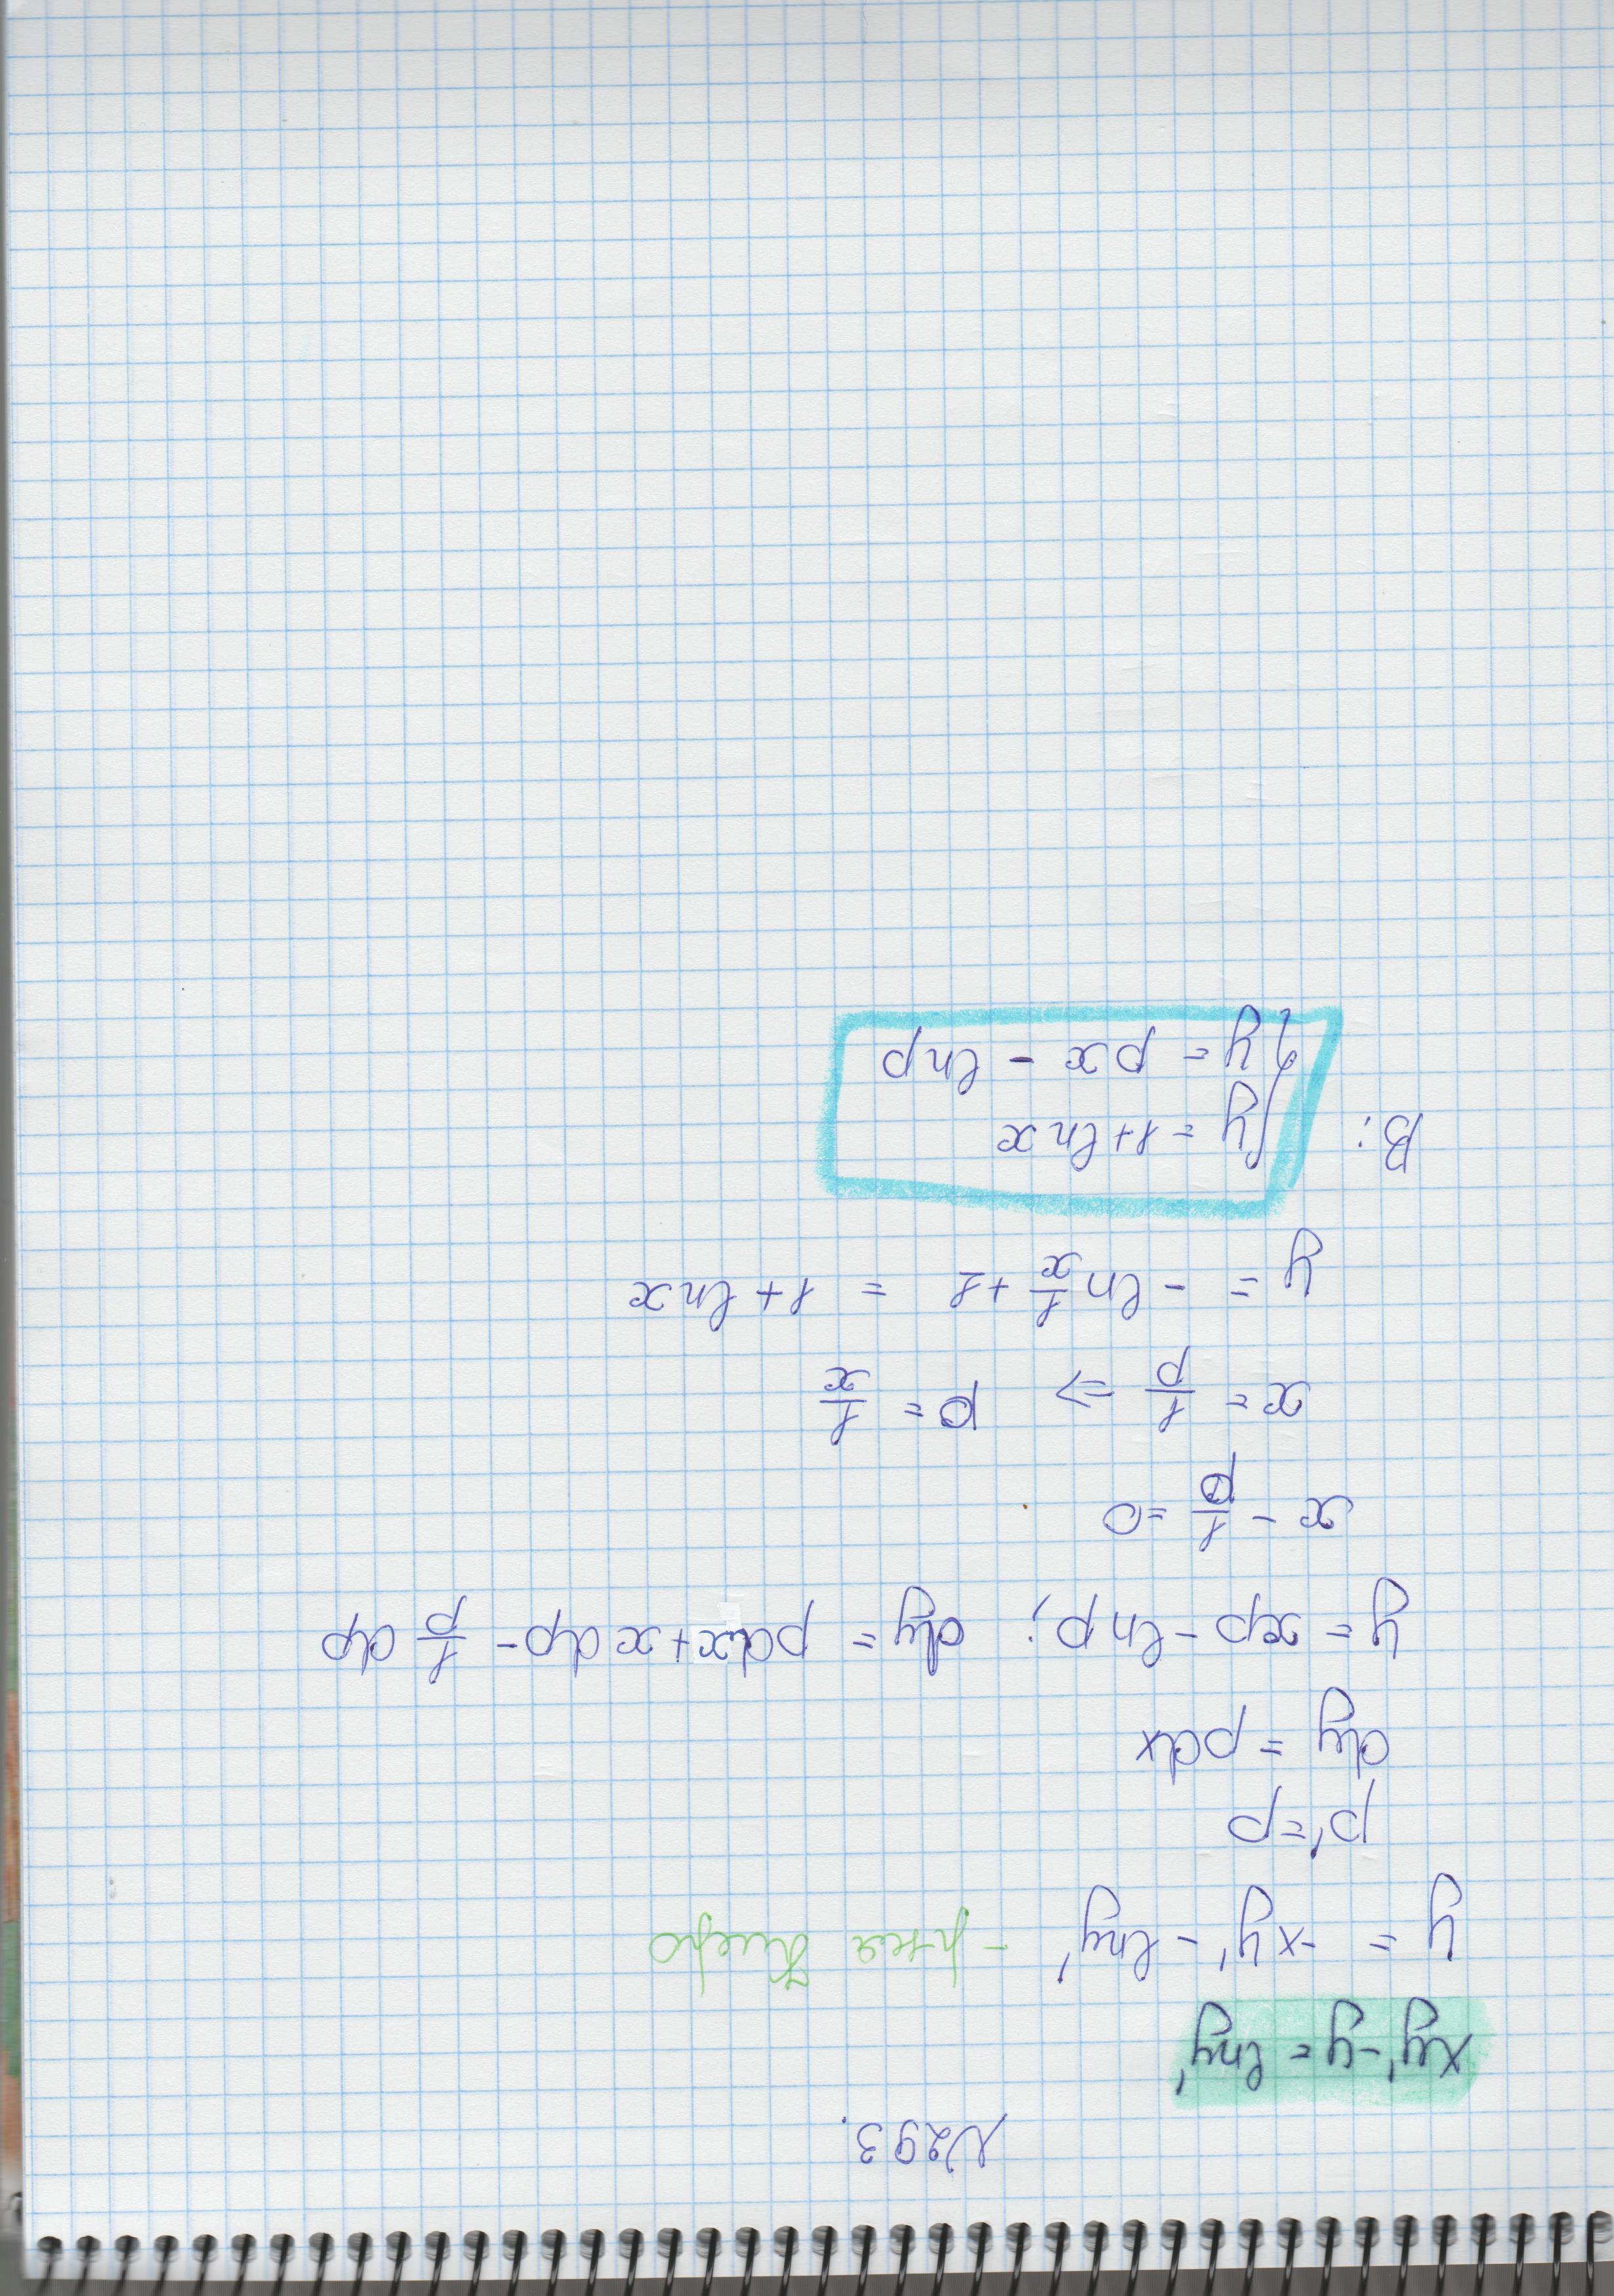 N293.
xy' - y = lny'
y = -xy' - lny' - р-ня Клеро
p' = p
dy = pdx
y = xp - lnp; dy = pdx + xdp - 1/p dp
x - 1/p = 0
x = 1/p => p = 1/x
y = - ln 1/x + 1 = 1 + lnx
В: { y = 1 + lnx
y = px - lnp